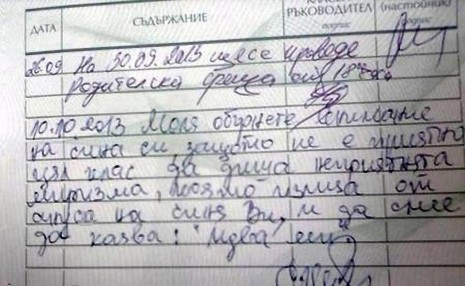 ДАТА СЪДЪРЖАНИЕ РЪКОВОДИТЕЛ (настойник)
подпис подпис
26.09 На 30.09.2013 ще се проведе
Родителска среща от 18 часа
10.10.2013 Моля обърнете внимание
на сина си защото не е приятно
цял клас да диша неприятната
миризма, която излиза от
ануса на сина Ви, и да смее
да казва: "Идва ...